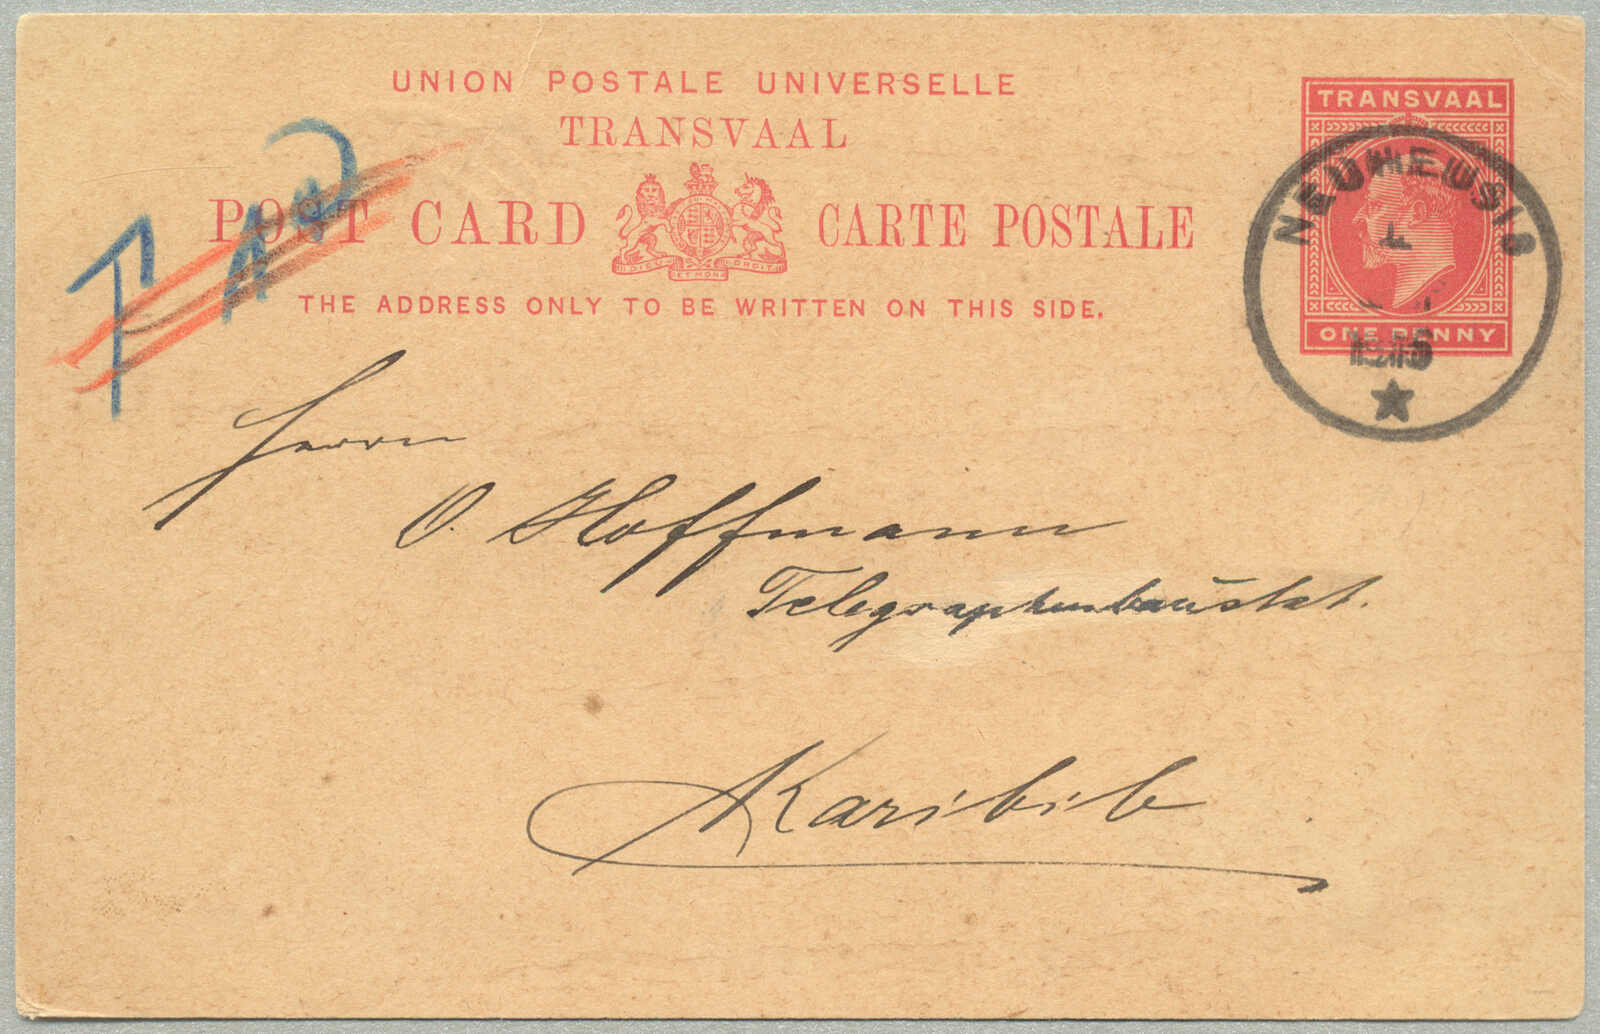 UNION POSTALE UNIVERSELLE
TRANSVAAL
POST CARD CARTE POSTALE
DIEU ET MON DROIT
THE ADDRESS ONLY TO BE WRITTEN ON THIS SIDE.
TRANSVAAL
ONE PENNY
NEUHEUSIS
T
Herrn
O. Hoffmann
Telegraphenbaustat.
Karibib